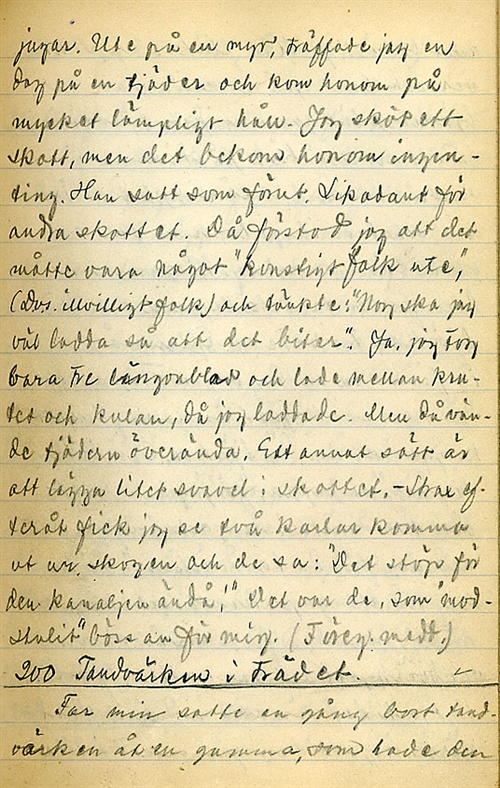 jagar. Ute på en myr, träffade jag en
dag på en tjäder och kom honom på
mycket lämpligt håll. Jag sköt ett
skott, men det bekom honom ingen-
ting. Han satt som förut. Likadant för
andra skottet. Då förstod jag att det
måtte vara något "konstigt folk ute",
(Dvs. illvilligt folk) och tänkte: "Nog ska jag
väl ladda så att det biter". Ja, jag tog
bara tre lingonblad och lade mellan kru-
tet och kulan, då jag laddade. Men då vän-
de tjädern överända. Ett annat sätt är
att lägga litet svavel i skottet. - Strax ef-
teråt fick jag se två karlar komma
ut ur skogen och de sa: "Det stöp för
den kanaljen ändå!" Det var de, som "mod-
stulit" bössan för mig. (Föreg. medd.)
200 Tandvärken i trädet.
Far min satte en gång bort tand-
värken åt en gumma, som hade den